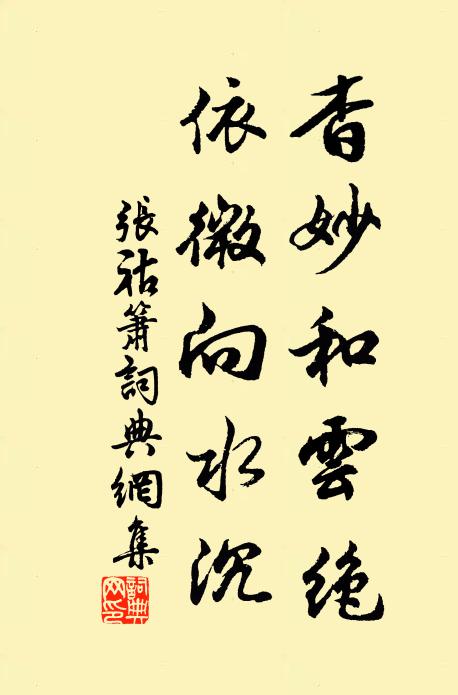 杳妙和雲絶
依微向水沉
張祜簫詞典網集
詞典
网印